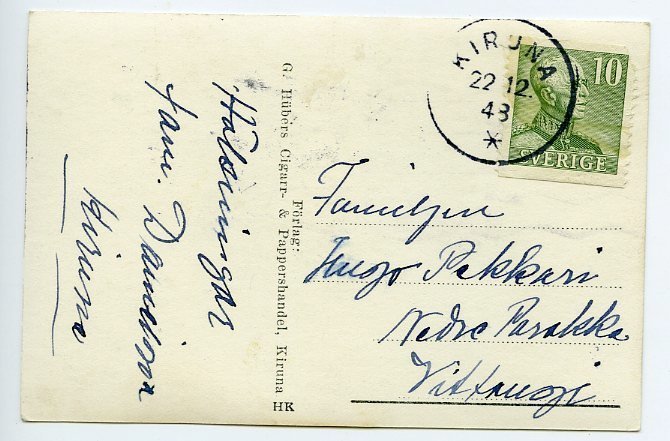 Hälsningar
fam. Davidsson
Kiruna
Förlag:
G. Hübérs Cigarr- & Pappershandel, Kiruna
HK
KIRUNA
22 12.
43
10
SVERIGE
Familjen
Hugo Pakkari
Nedre Parakka
Vittangi